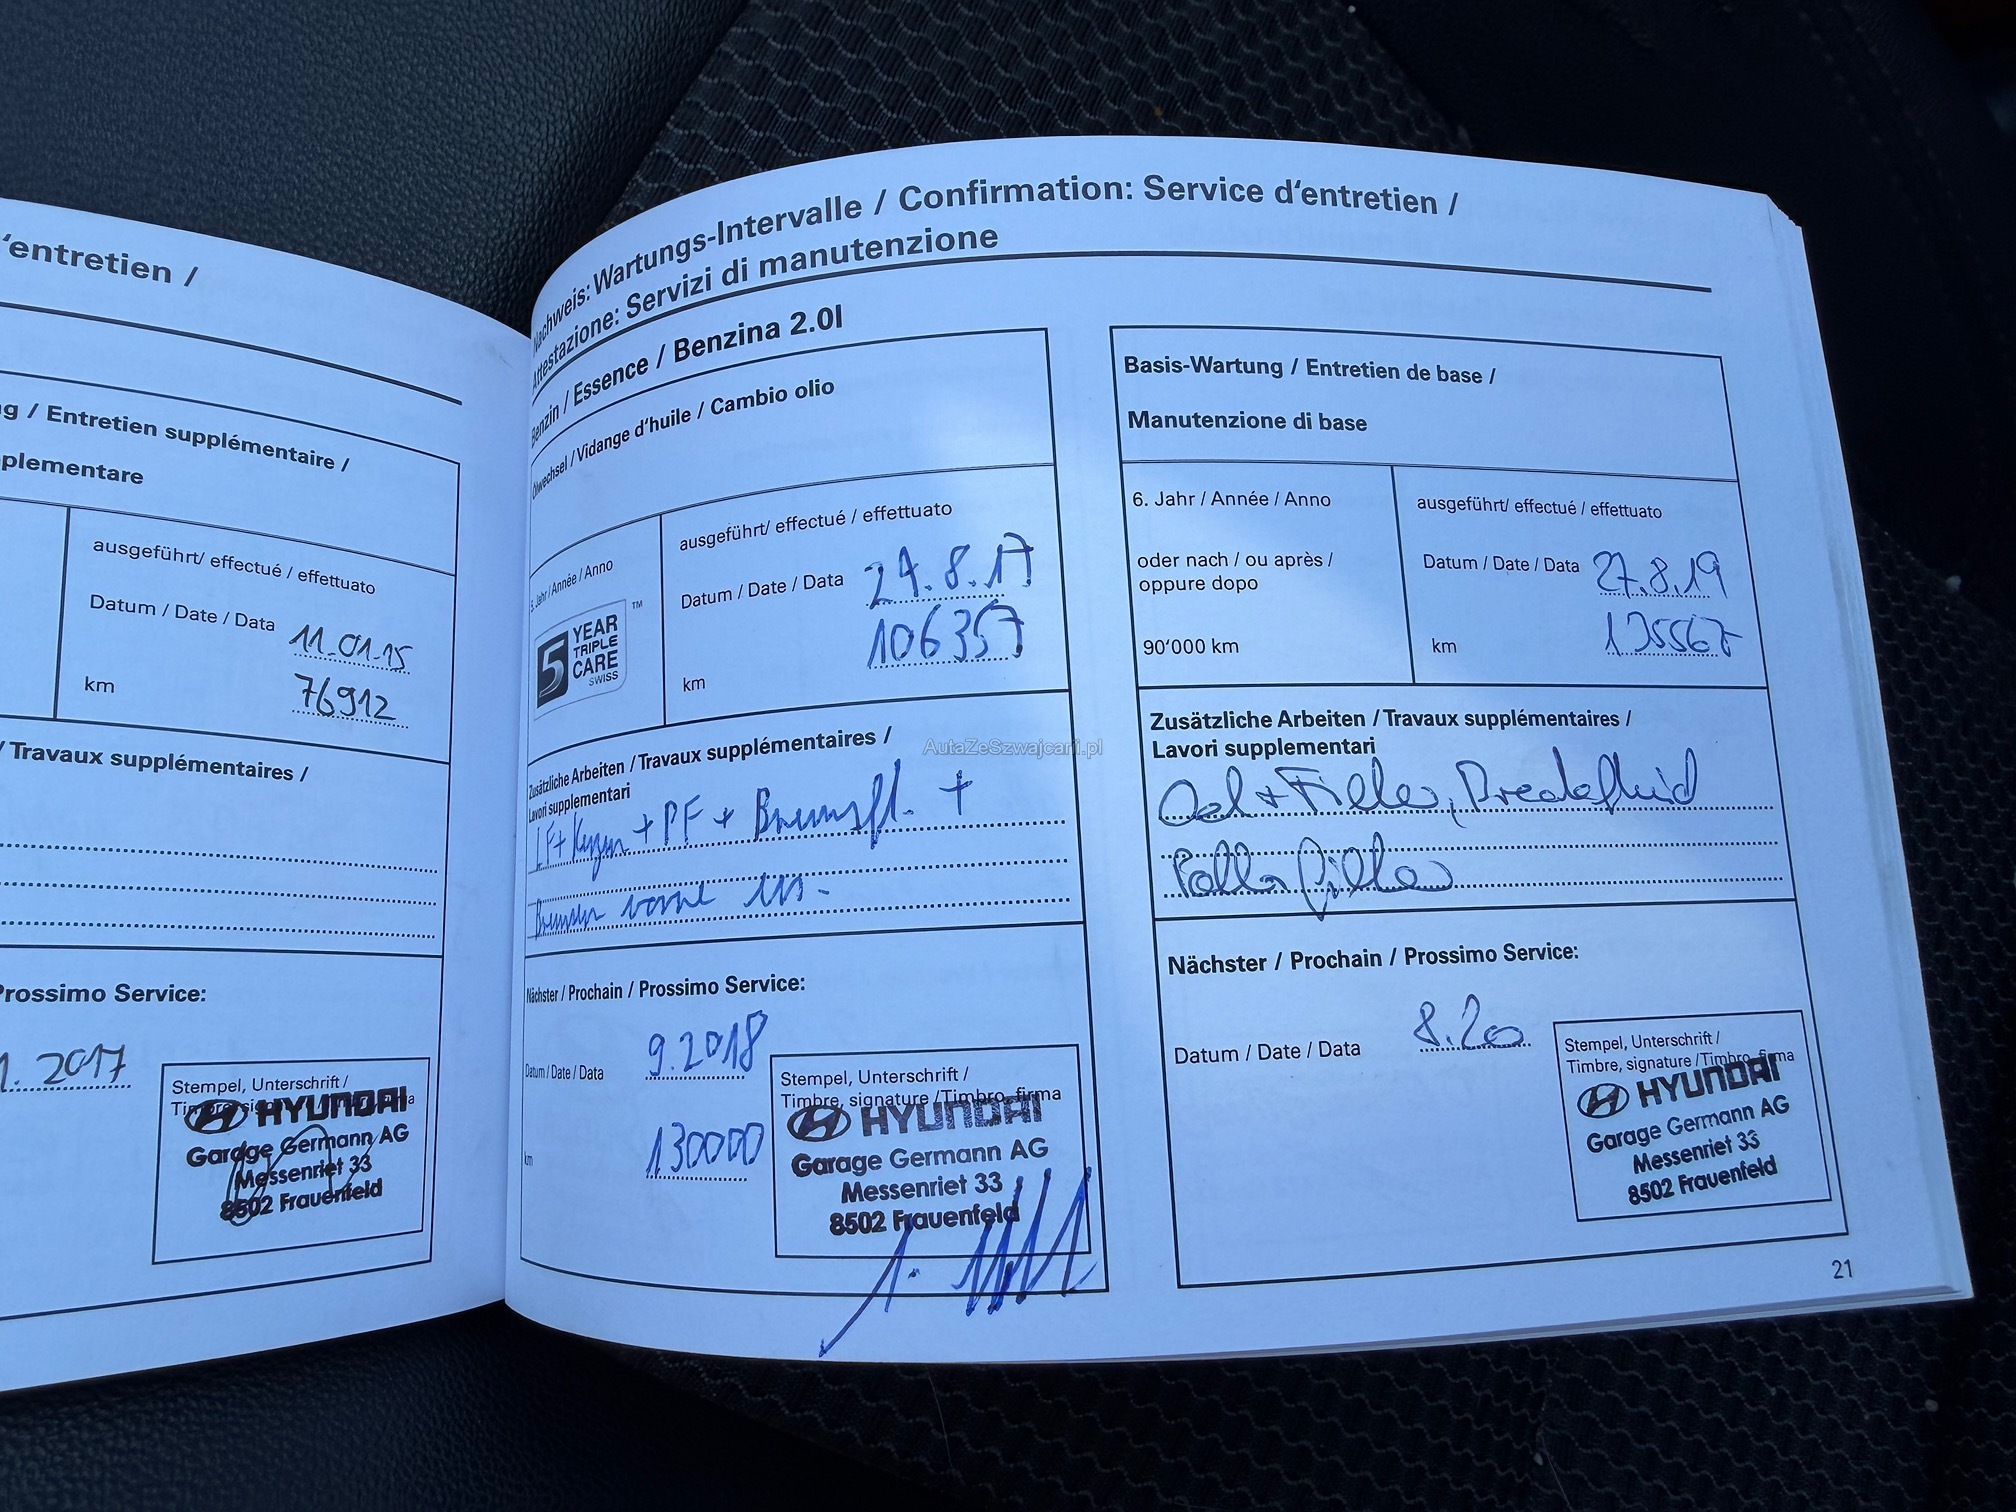 'entretien /
g / Entretien supplémentaire /
plementare
ausgeführt/ effectué / effettuato
Datum / Date / Data 11.01.15
km 76912
/ Travaux supplémentaires /
Prossimo Service:
1. 2017
Stempel, Unterschrift /
HYUNDAI
Garage Germann AG
Messenriet 33
8502 Frauenfeld
Nachweis: Wartungs-Intervalle / Confirmation: Service d'entretien /
Attestazione: Servizi di manutenzione
Benzin / Essence / Benzina 2.0l
Ölwechsel / Vidange d'huile / Cambio olio
5. Jahr / Année / Anno
5 YEAR
TRIPLE
CARE
SWISS
TM
ausgeführt/ effectué / effettuato
Datum / Date / Data 24.8.17
km 106357
Zusätzliche Arbeiten / Travaux supplémentaires /
Lavori supplementari
+ PF + Bremsfl. +
Bremsen vorne
Nächster / Prochain / Prossimo Service:
Datum / Date / Data 9.2018
km 130000
Stempel, Unterschrift /
Timbre, signature / Timbro, firma
HYUNDAI
Garage Germann AG
Messenriet 33
8502 Frauenfeld
Basis-Wartung / Entretien de base /
Manutenzione di base
6. Jahr / Année / Anno
oder nach / ou après /
oppure dopo
90'000 km
ausgeführt/ effectué / effettuato
Datum / Date / Data 27.8.19
km 135567
Zusätzliche Arbeiten / Travaux supplémentaires /
Lavori supplementari
Oel + Filter,
Pollenfilter
Nächster / Prochain / Prossimo Service:
Datum / Date / Data 8.20
Stempel, Unterschrift /
Timbre, signature / Timbro, firma
HYUNDAI
Garage Germann AG
Messenriet 33
8502 Frauenfeld
21
AutaZeSzwajcarii.pl